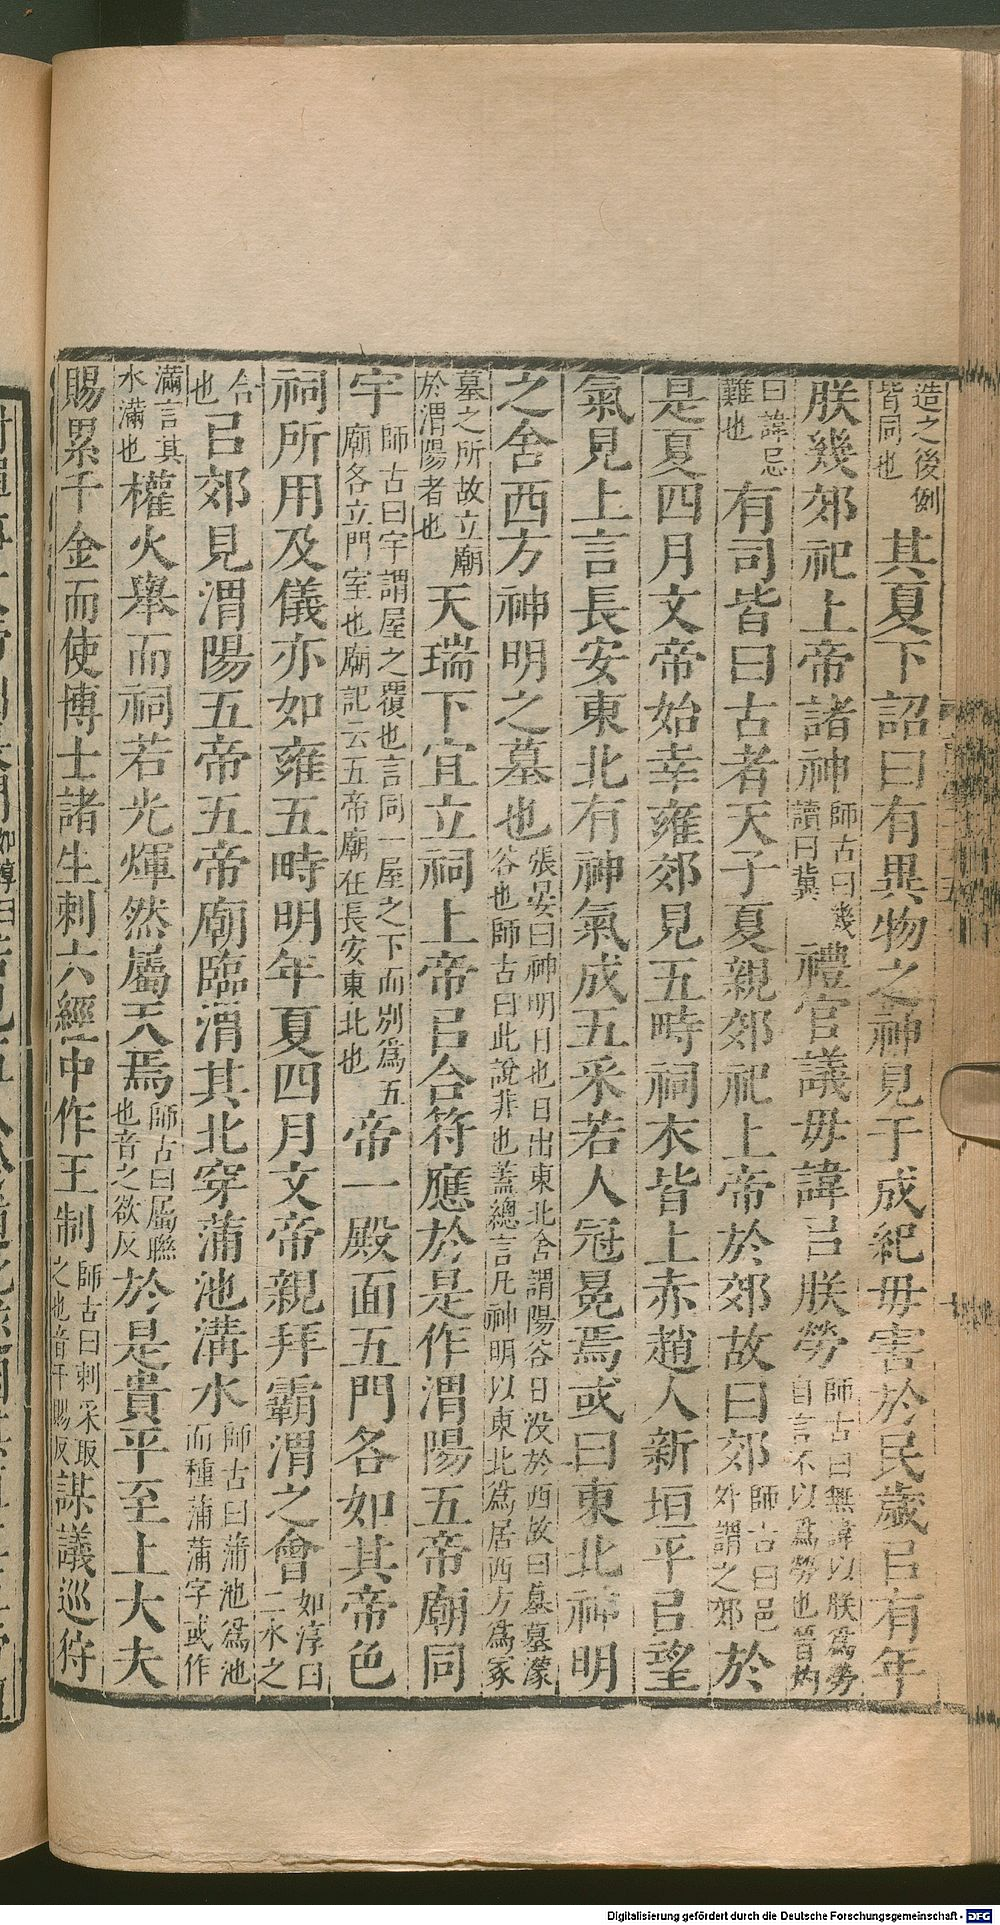 造之後例皆同也其夏下詔曰有異物之神見于成紀毋害於民歲㠯有年
朕幾郊祀上帝諸神師古曰幾讀曰冀禮官議毋諱㠯朕勞師古曰無諱以朕為勞自言不以為勞也
曰諱忌難也有司皆曰古者天子夏親郊祀上帝於郊故曰郊師古曰邑外謂之郊於
是夏四月文帝始幸雍郊見五畤祠衣皆上赤趙人新垣平㠯望
氣見上言長安東北有神氣成五采若人冠冕焉或曰東北神明
之舍西方神明之墓也張晏曰神明日也日出東北舍謂陽谷日没於西故曰墓墓濛谷也師古曰此說非也蓋總言凡神明以東北為居西方為冢
墓之所故立廟於渭陽者也天瑞下宜立祠上帝㠯合符應於是作渭陽五帝廟同
宇師古曰宇謂屋之覆也言同一屋之下而別為五廟各立門室也廟記云五帝廟在長安東北也帝一殿面五門各如其帝色
祠所用及儀亦如雍五畤明年夏四月文帝親拜霸渭之會如淳曰二水之
合也㠯郊見渭陽五帝五帝廟臨渭其北穿蒲池溝水師古曰蒲池為池而種蒲蒲字或作
滿言其水滿也權火舉而祠若光煇然屬天焉師古曰屬聯也音之欲反於是貴平至上大夫
賜累千金而使博士諸生刺六經中作王制師古曰刺采取之也音千賜反謀議巡狩
Digitalisierung gefördert durch die Deutsche Forschungsgemeinschaft - DFG